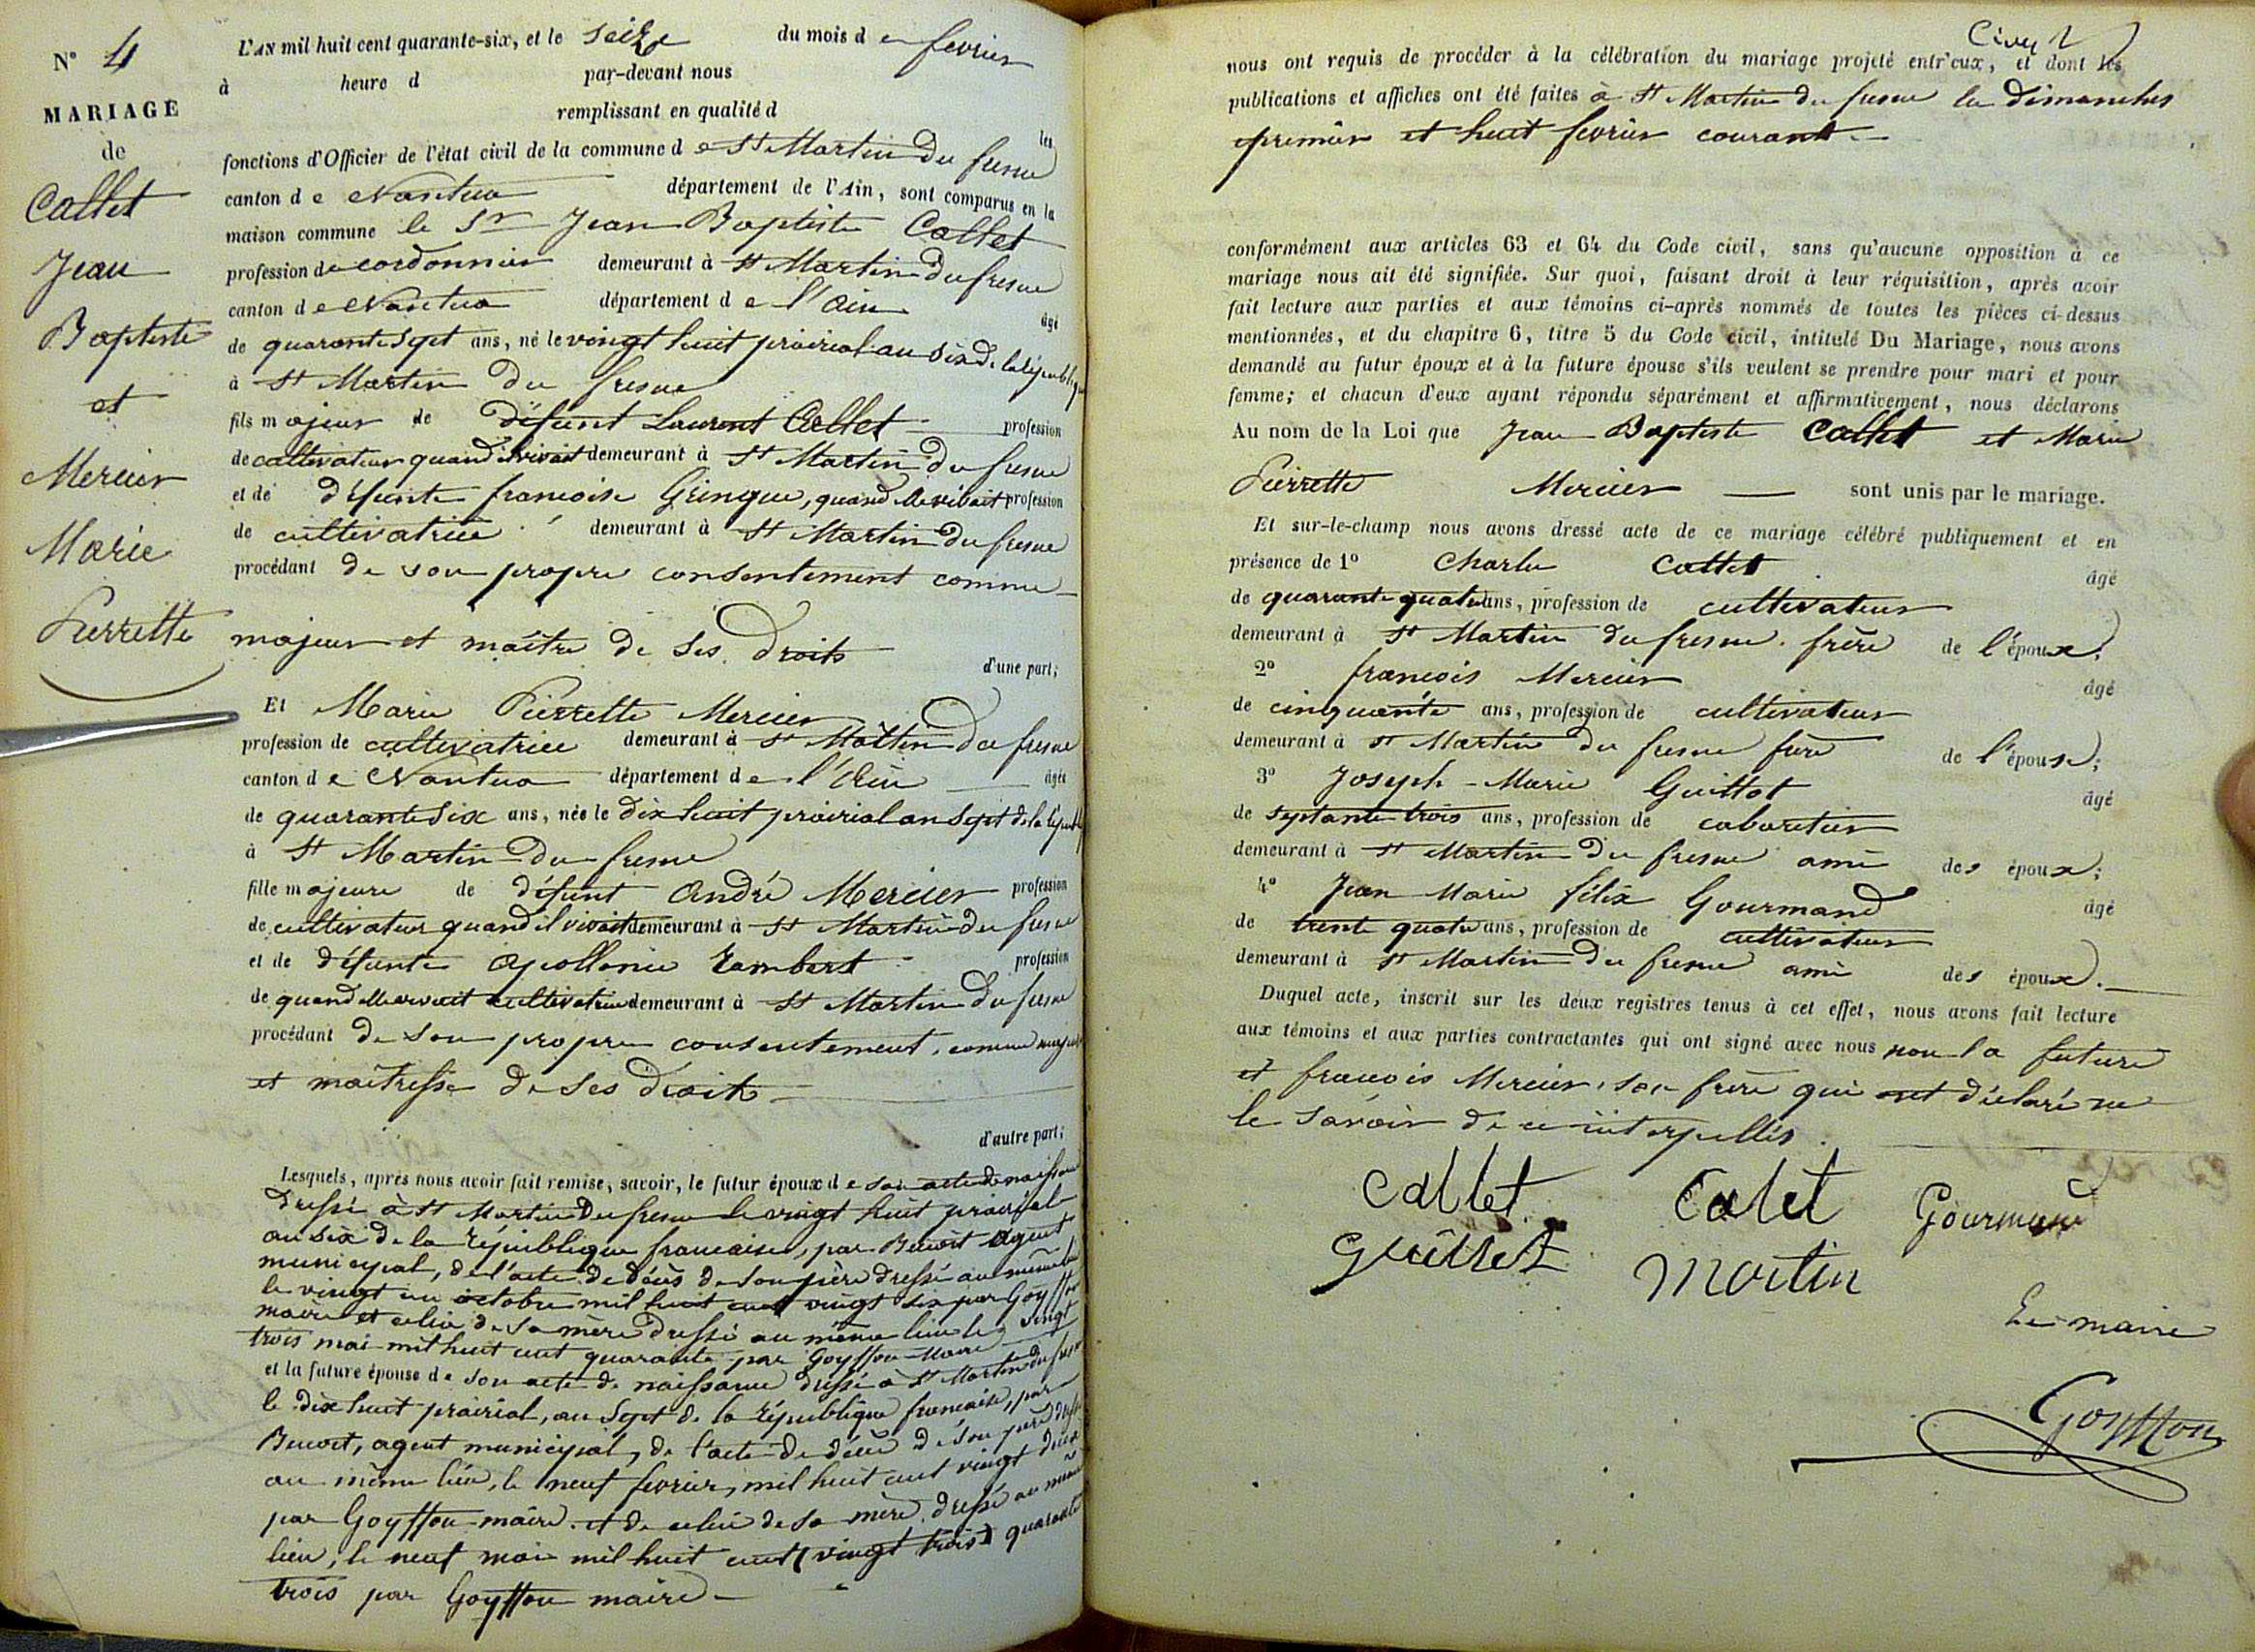 N° 4
MARIAGE
de
Callet
Jean
Baptiste
et
Mercier
Marie
Pierrette
L'AN mil huit cent quarante-six, et le seize du mois de fevrier
à heure d par-devant nous
remplissant en qualité d les
fonctions d'Officier de l'état civil de la commune de St Martin du fresne
canton de Nantua département de l'Ain, sont comparus en la
maison commune le Sr Jean Baptiste Callet
profession de cordonnier demeurant à St Martin du fresne
canton de Nantua département de l'Ain âgé
de quarante sept ans, né le vingt huit prairial an six de la républiq
à St Martin du fresne
fils majeur de défunt Laurent Callet profession
de cultivateur quand il vivait demeurant à St Martin du fresne
et de défunte francoise Gringue, quand elle vivait profession
de cultivatrice demeurant à St Martin du fresne
procédant de son propre consentement comme
majeur et maître de ses droits
d'une part;
Et Marie Pierrette Mercier
profession de cultivatrice demeurant à St Martin du fresne
canton de Nantua département de l'Ain âgée
de quarante six ans, née le dix huit prairial an sept de la républ
à St Martin du fresne
fille majeure de défunt André Mercier profession
de cultivateur quand il vivait demeurant à St Martin du fresne
et de défunte Apollonie Lambert profession
de quand elle vivait cultivatrice demeurant à St Martin du fresne
procédant de son propre consentement, comme majeure
et maîtresse de ses droits
d'autre part;
Lesquels, après nous avoir fait remise, savoir, le futur époux de son acte de naissance
dressé à St Martin du fresne le vingt huit prairial
an six de la république francaise, par Benoit Agent
municipal, de l'acte de décès de son père dressé au même lieu
le vingt un octobre mil huit cent vingt six par Goyffon
maire et celui de sa mère dressé au même lieu le vingt
trois mai mil huit cent quarante par Goyffon Maire
et la future épouse de son acte de naissance dressé à St Martin du fresne
le dix huit prairial, an sept de la république francaise, par
Benoit, agent municipal, de l'acte de décès de son père dressé
au même lieu, le neuf fevrier, mil huit cent vingt deux
par Goyffon maire. et de celui de sa mère dressé au même
lieu, le neuf mai mil huit cent (vingt trois) quarante
trois par Goyffon maire
nous ont requis de procéder à la célébration du mariage projeté entr'eux, et dont les
publications et affiches ont été faites à St Martin du fresne les dimanches
premier et huit fevrier courant.
conformément aux articles 63 et 64 du Code civil, sans qu'aucune opposition à ce
mariage nous ait été signifiée. Sur quoi, faisant droit à leur réquisition, après avoir
fait lecture aux parties et aux témoins ci-après nommés de toutes les pièces ci-dessus
mentionnées, et du chapitre 6, titre 5 du Code civil, intitulé Du Mariage, nous avons
demandé au futur époux et à la future épouse s'ils veulent se prendre pour mari et pour
femme; et chacun d'eux ayant répondu séparément et affirmativement, nous déclarons
Au nom de la Loi que Jean Baptiste Callet et Marie
Pierrette Mercier sont unis par le mariage.
Et sur-le-champ nous avons dressé acte de ce mariage célébré publiquement et en
présence de 1° Charles Callet âgé
de quarante quatre ans, profession de cultivateur
demeurant à St Martin du fresne. frère de l'époux;
2° francois Mercier âgé
de cinquante ans, profession de cultivateur
demeurant à St Martin du fresne frère de l'épouse;
3° Joseph-Marie Guittot âgé
de septante trois ans, profession de cabaretier
demeurant à St Martin du fresne ami des époux;
4° Jean Marie félix Gourmand âgé
de trente quatre ans, profession de cultivateur
demeurant à St Martin du fresne ami des époux.
Duquel acte, inscrit sur les deux registres tenus à cet effet, nous avons fait lecture
aux témoins et aux parties contractantes qui ont signé avec nous non la future
et francois Mercier, son frère qui ont déclaré ne
le savoir de ce interpellés.
Callet Calet Gourmand
Martin
Le maire
Goyffon